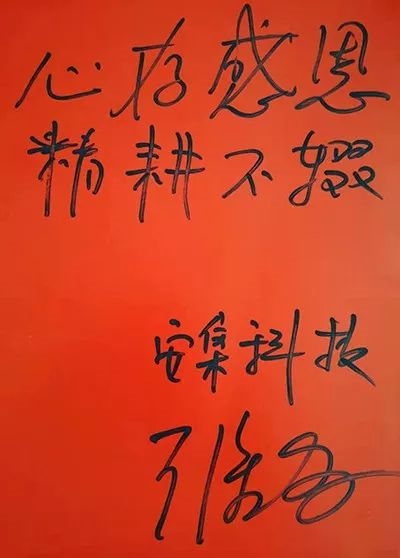 心存感恩
精耕不辍
安集科技